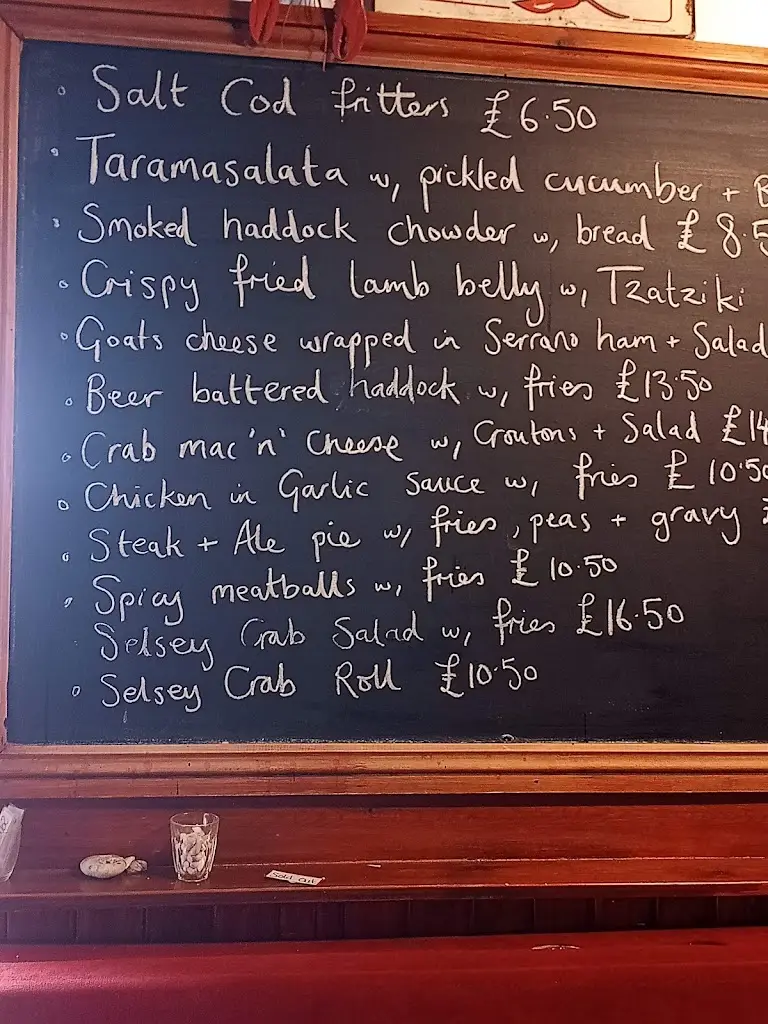 Salt Cod fritters £6.50
Taramasalata w, pickled cucumber + B
Smoked haddock chowder w, bread £8.5
Crispy fried lamb belly w, Tzatziki
Goats cheese wrapped in Serrano ham + Salad
Beer battered haddock w, fries £13.50
Crab mac 'n' Cheese w, Croutons + Salad £14
Chicken in Garlic Sauce w, fries £10.50
Steak + Ale pie w, fries, peas + gravy £
Spicy meatballs w, fries £10.50
Selsey Crab Salad w, fries £16.50
Selsey Crab Roll £10.50
Sold out